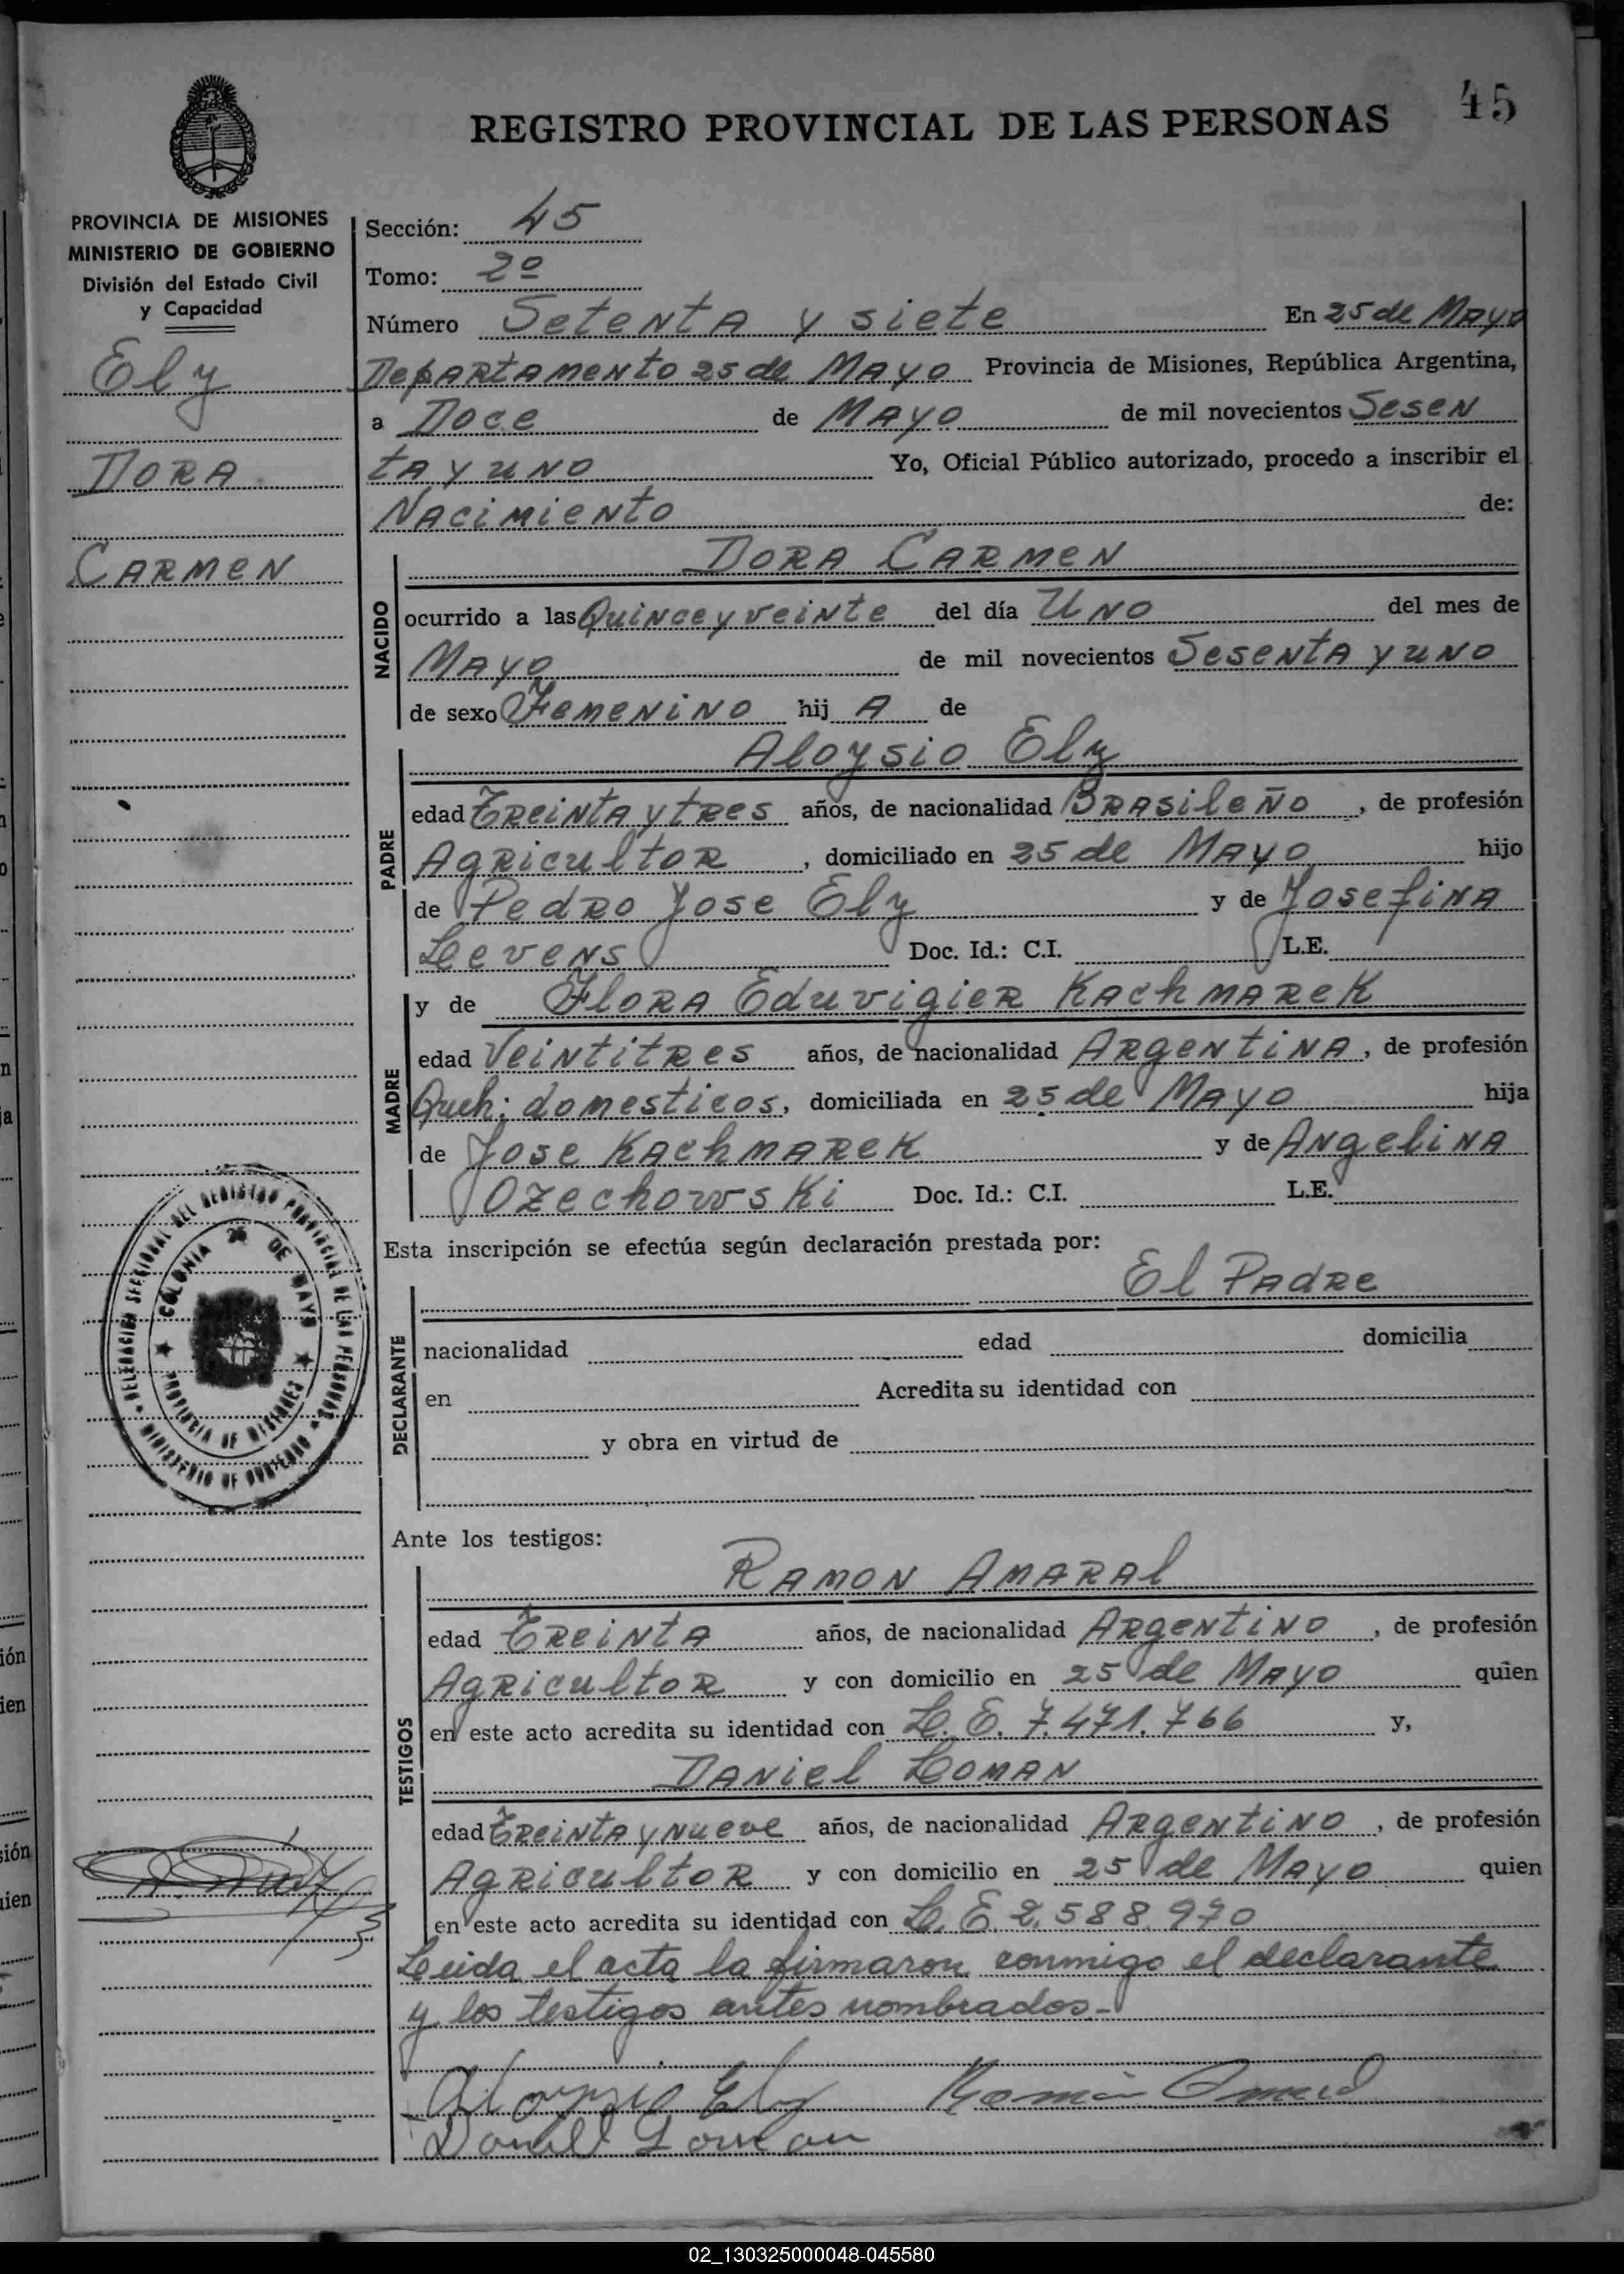 45
REGISTRO PROVINCIAL DE LAS PERSONAS
PROVINCIA DE MISIONES
MINISTERIO DE GOBIERNO
División del Estado Civil
y Capacidad
Ely
DORA
CARMEN
Sección: 45
Tomo: 2º
Número Setenta y siete En 25 de Mayo
Departamento 25 de Mayo Provincia de Misiones, República Argentina,
a Doce de Mayo de mil novecientos Sesen
ta y uno Yo, Oficial Público autorizado, procedo a inscribir el
Nacimiento de:
NACIDO
Dora Carmen
ocurrido a las Quince y veinte del día Uno del mes de
Mayo de mil novecientos Sesenta y uno
de sexo Femenino hij A de
PADRE
Aloysio Ely
edad Treinta y tres años, de nacionalidad Brasileño, de profesión
Agricultor, domiciliado en 25 de Mayo hijo
de Pedro Jose Ely y de Josefina
Levens Doc. Id.: C.I. L.E.
MADRE
y de Flora Eduvigier Kachmarek
edad Veintitres años, de nacionalidad Argentina, de profesión
Queh: domesticos, domiciliada en 25 de Mayo hija
de Jose Kachmarek y de Angelina
Ozechowski Doc. Id.: C.I. L.E.
Esta inscripción se efectúa según declaración prestada por:
DECLARANTE
El Padre
nacionalidad edad domicilia
en Acredita su identidad con
y obra en virtud de
DELEGACION SECCIONAL DEL REGISTRO PROVINCIAL DE LAS PERSONAS
MINISTERIO DE GOBIERNO
COLONIA 25 DE MAYO
PROVINCIA DE MISIONES
Ante los testigos:
TESTIGOS
Ramon Amaral
edad Treinta años, de nacionalidad Argentino, de profesión
Agricultor y con domicilio en 25 de Mayo quien
en este acto acredita su identidad con L. E. 7.471.766 y,
Daniel Loman
edad Treinta y nueve años, de nacionalidad Argentino, de profesión
Agricultor y con domicilio en 25 de Mayo quien
en este acto acredita su identidad con L. E. 2.588.970
Leida el acta la firmaron conmigo el declarante
y los testigos antes nombrados.-
Aloysio Ely Ramón Amaral
Daniel Loman
02_130325000048-045580